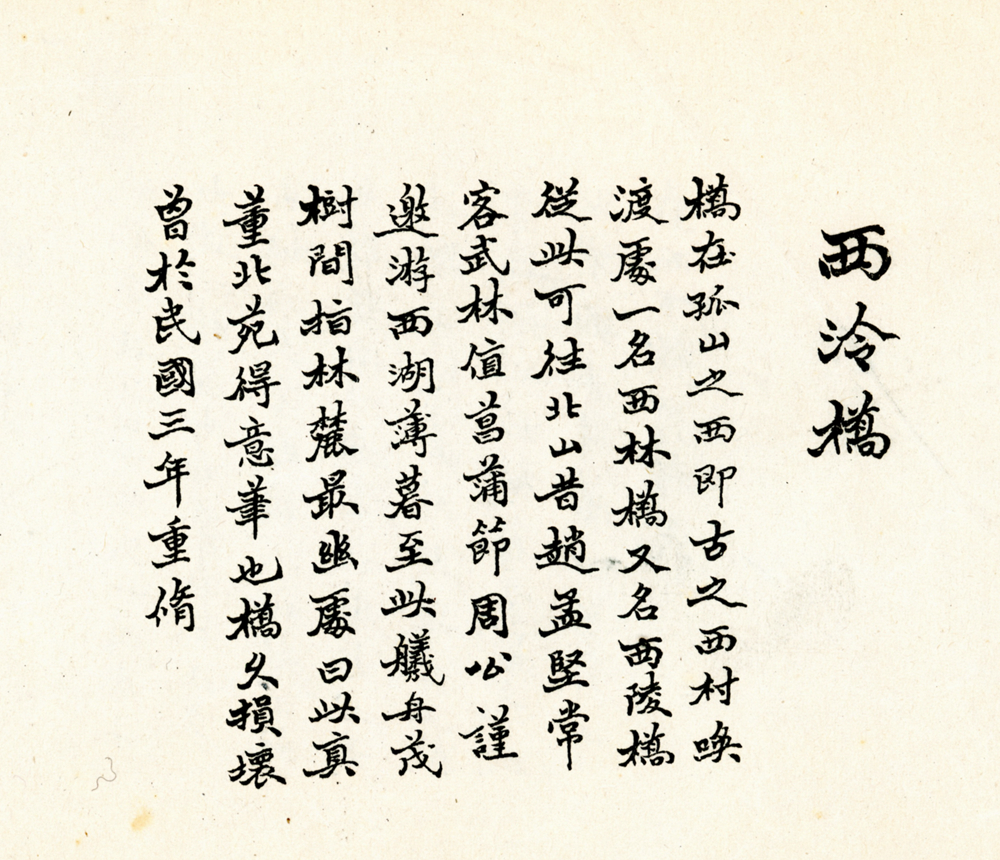 西泠橋
橋在孤山之西即古之西村喚
渡處一名西林橋又名西陵橋
從此可往北山昔趙孟堅常
客武林值菖蒲節周公謹
邀游西湖薄暮至此艤舟茂
樹間指林麓最幽處曰此真
董北苑得意筆也橋久損壞
曾於民國三年重脩